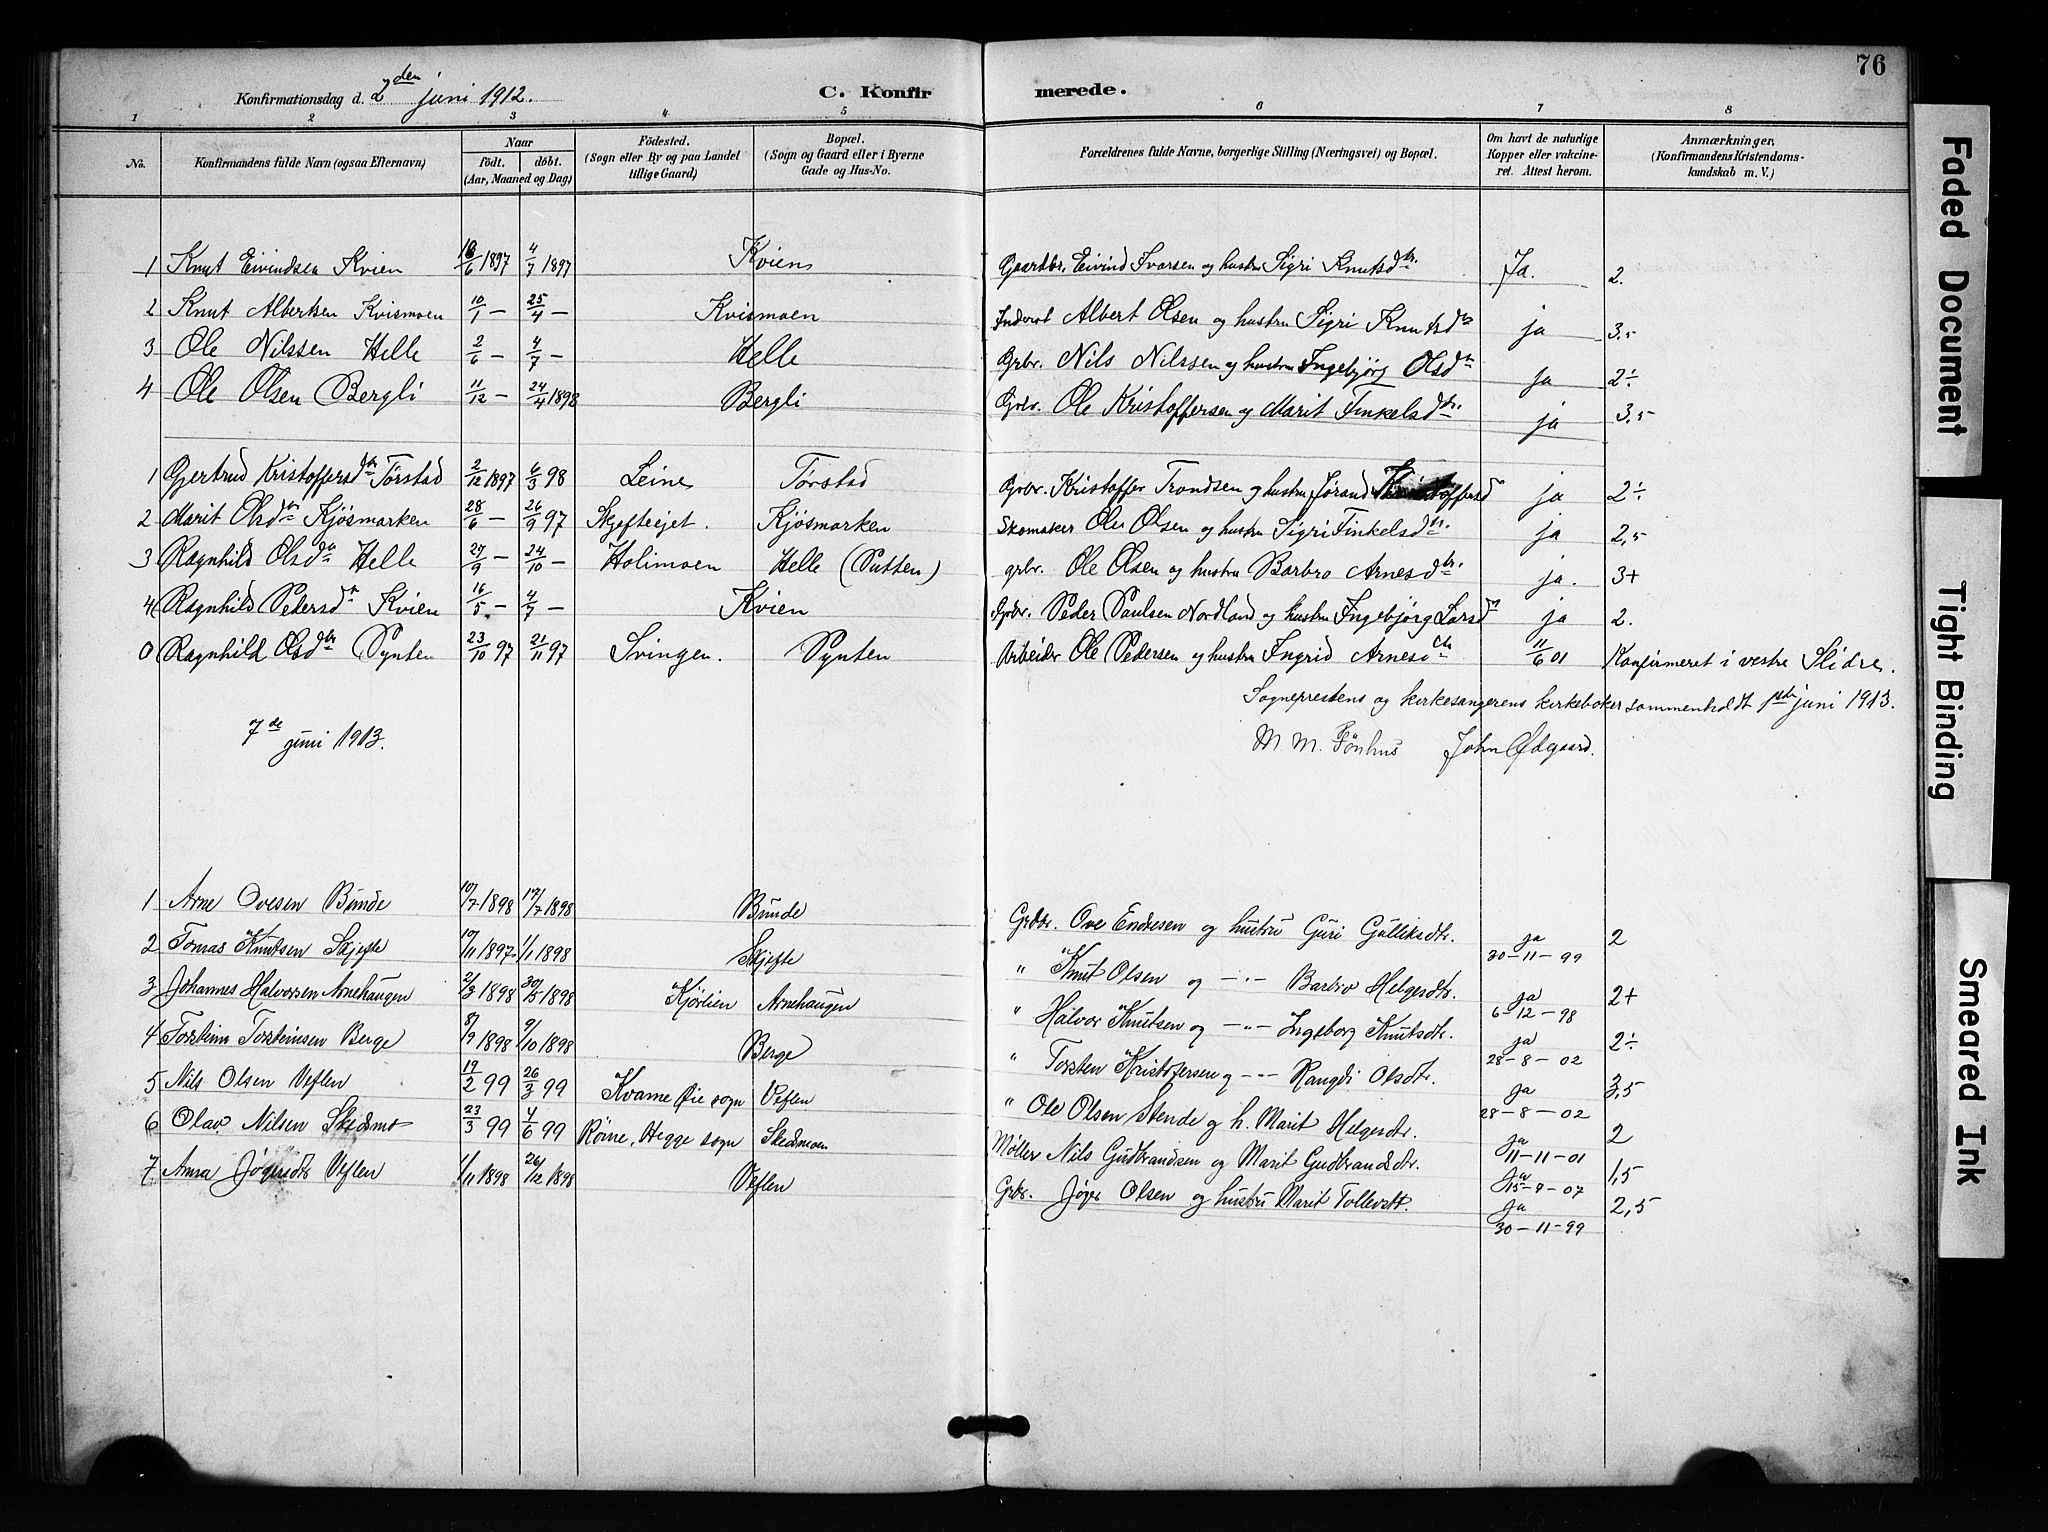 76
Konfirmationsdag d. 2den juni 1912. C. Konfir merede.
1 2 3 4 5 6 7 8
No. Konfirmandens fulde Navn (ogsaa Efternavn) Naar födt. döbt. (Aar, Maaned og Dag) Födested. (Sogn eller By og paa Landet tillige Gaard) Bopæl. (Sogn og Gaard eller i Byerne Gade og Hus-No. Forældrenes fulde Navne, borgerlige Stilling (Næringsvei) og Bopæl. Om havt de naturlige Kopper eller vakcineret. Attest herom. Anmærkninger, (Konfirmandens Kristendomskundskab m. V.)
1 Knut Eivindsen Kvien 16/6 1897 4/7 1897 Kvien Gaardbr. Eivind Ivarsen og hustru Sigri Knutsdtr. Ja. 2.
2 Knut Albertsen Kvismoen 10/1 — 25/4 — Kvismoen Albert Olsen og hustru Sigri Knutsdtr ja 3.5
3 Ole Nilssen Helle 2/6 — 4/7 — Helle Grbr. Nils Nilssen og hustru Ingebjörg Olsdtr ja 2÷
4 Ole Olsen Bergli 11/12 — 24/4 1898 Bergli Grbr. Ole Kristoffersen og Marit Finkelsdtr. ja 3,5
1 Gjertrud Kristoffersdtr Tørstad 2/12 1897 6/3 98 Leine Tørstad Grbr. Kristoffer Trondsen og hustru Jørand Kristoffersd ja 2÷
2 Marit Olsdtr Kjösmarken 28/6 — 26/9 97 Skjefteejet. Kjösmarken Skomaker Ole Olsen og hustru Sigri Finkelsdtr. ja 2,5
3 Ragnhild Olsdtr Helle 27/9 — 24/10 — Holimoen Helle (Putten) grbr. Ole Olsen og hustru Barbro Arnesdtr. ja. 3+
4 Ragnhild Pedersdtr Kvien 16/5 — 4/7 — Kvien Grbr. Peder Paulsen Nordland og hustru Ingebjørg Larsdtr ja 2.
0 Ragnhild Olsdtr Synten 23/10 97 21/11 97 Svingen. Synten Arbeider Ole Pedersen og hustru Ingrid Arnesdtr 11/6 01 Konfirmeret i vestre Slidre.
Sogneprestens og kirkesangerens kirkebøker sammenholdt 1ste juni 1913.
7de juni 1913. M. M. Fönhus John Ødgaard.
1 Arne Ovesen Bunde 10/7 1898 17/7 1898 Bunde Grdbr. Ove Endresen og hustru Guri Gulliksdtr. ja 30-11-99 2
2 Tomas Knutsen Skjefte 17/11 1897 1/1 1898 Skjefte " Knut Olsen og —"— Barbro Helgesdtr. ja 6-12-98 2+
3 Johannes Halvorsen Arnehaugen 2/3 1898 30/5 1898 Kjørlien Arnehaugen " Halvor Knutsen og —"— Ingeborg Knutsdtr. ja 28-8-02 2÷
4 Torsteinn Torsteinsen Berge 8/9 1898 9/10 1898 Berge " Torsten Kristofersen og —"— Rangdi Olsdtr. ja 28-8-02 3,5
5 Nils Olsen Veflen 19/2 99 26/3 99 Kvame Øie sogn Veflen " Ole Olsen Stende og h. Marit Helgesdtr. ja 11-11-01 2
6 Olav Nilsen Skedsmo 23/3 99 4/6 99 Røine, Hegge sogn Skedsmoen Møller Nils Gudbrandsen og Marit Gudbrandsdtr. ja 15-9-07 1,5
7 Anna Jøgersdtr Veflen 1/11 1898 26/12 1898 Veflen Grbr. Jøger Olsen og hustru Marit Tollevsdtr. ja 30-11-99 2,5
Faded Document
Tight Binding
Smeared Ink